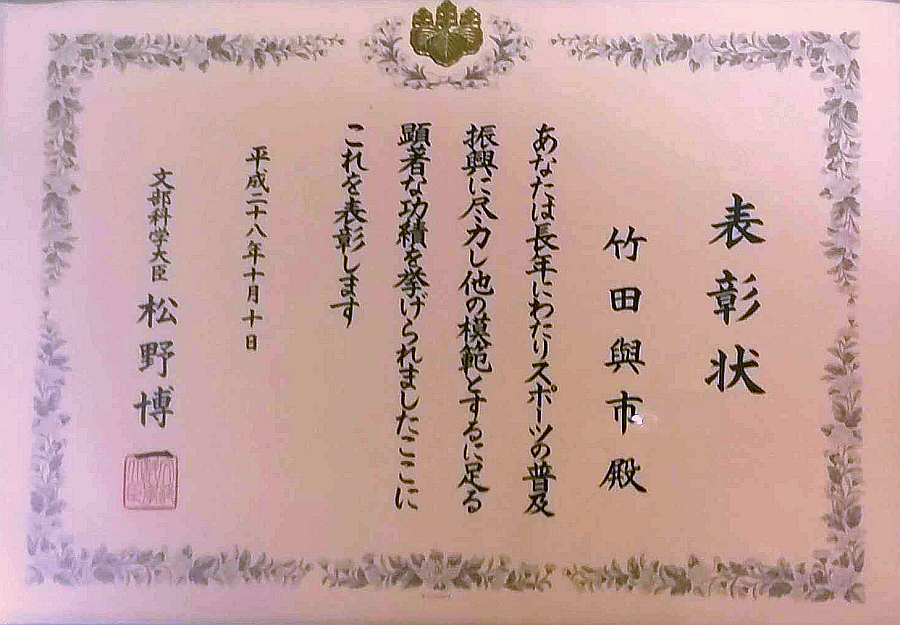 表彰状
竹田與市殿
あなたは長年にわたりスポーツの普及
振興に尽力し他の模範とするに足る
顕著な功績を挙げられましたここに
これを表彰します
平成二十八年十月十日
文部科学大臣 松野博一